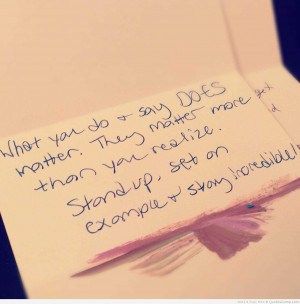 What you do + say DOES
matter. They matter more
than you realize.
Stand up. set an
example + stay incredible!